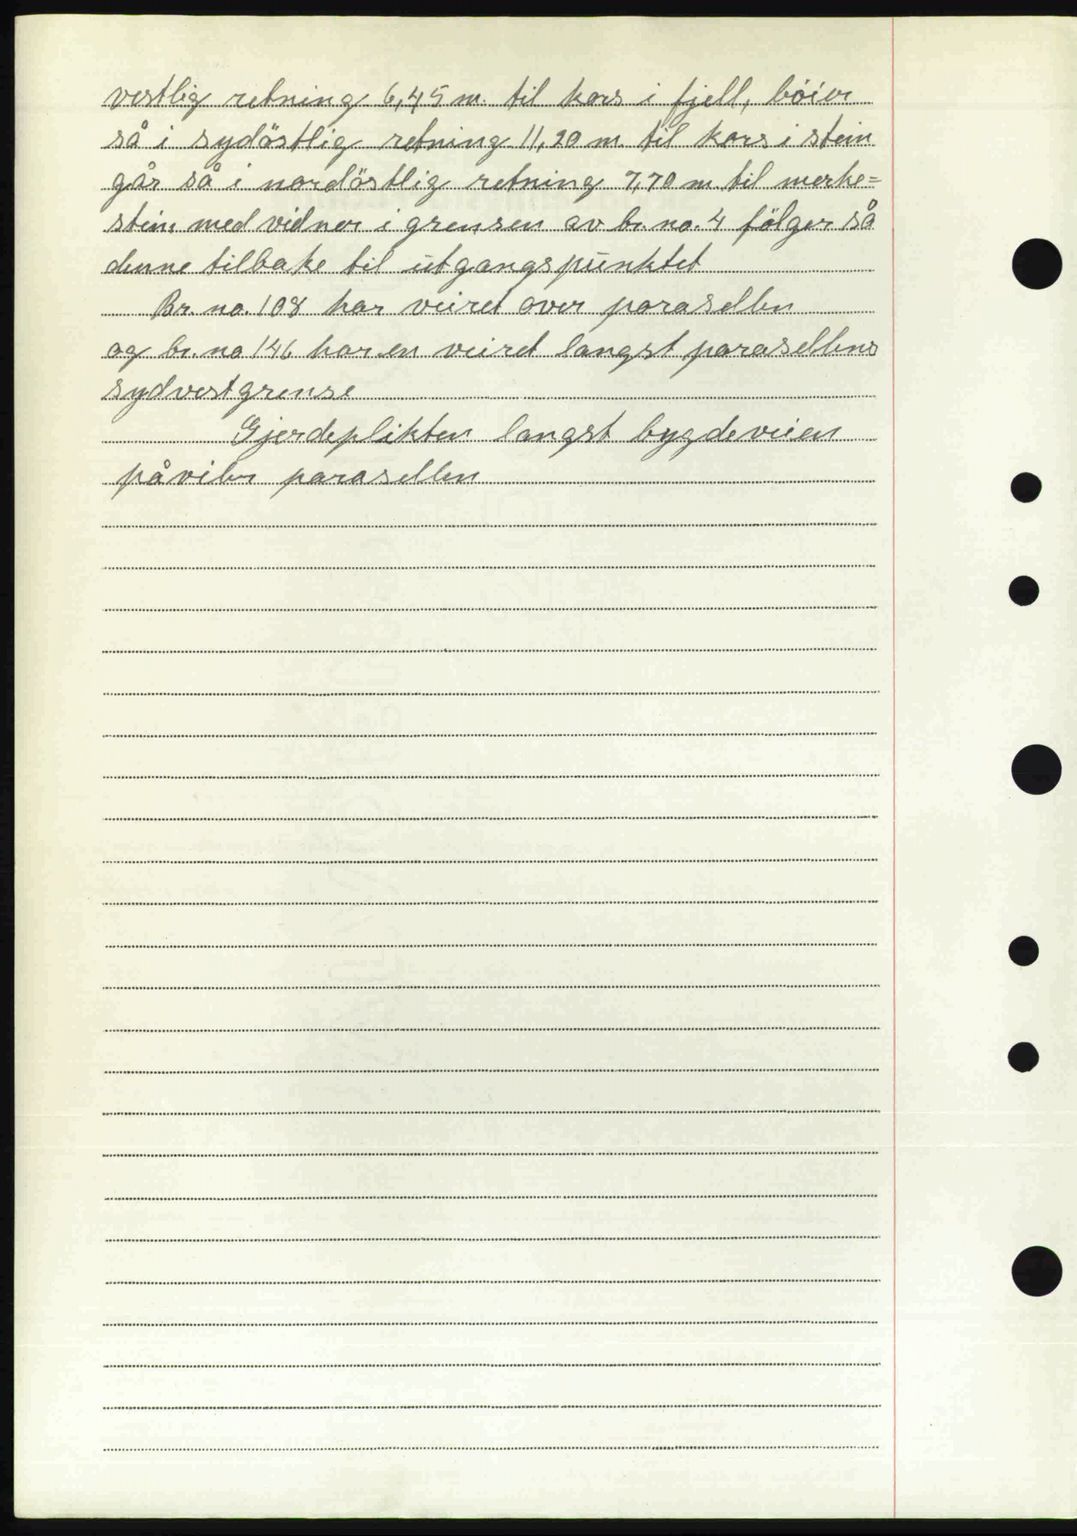 vestlig retning 6,45 m. til kors i fjell, böier
så i sydöstlig retning 11,20 m til kors i stein
går så i nordöstlig retning 7,70 m til merke=
stein med vidner i grensen av br. no. 4 fölger så
denne tilbake til utgangspunktet
Br. no. 108 har veiret over parasellen
og br. no 146 har en veiret langst parasellens
sydvestgrense
Gjerdeplikten langst bygdeveien
påviler parasellen